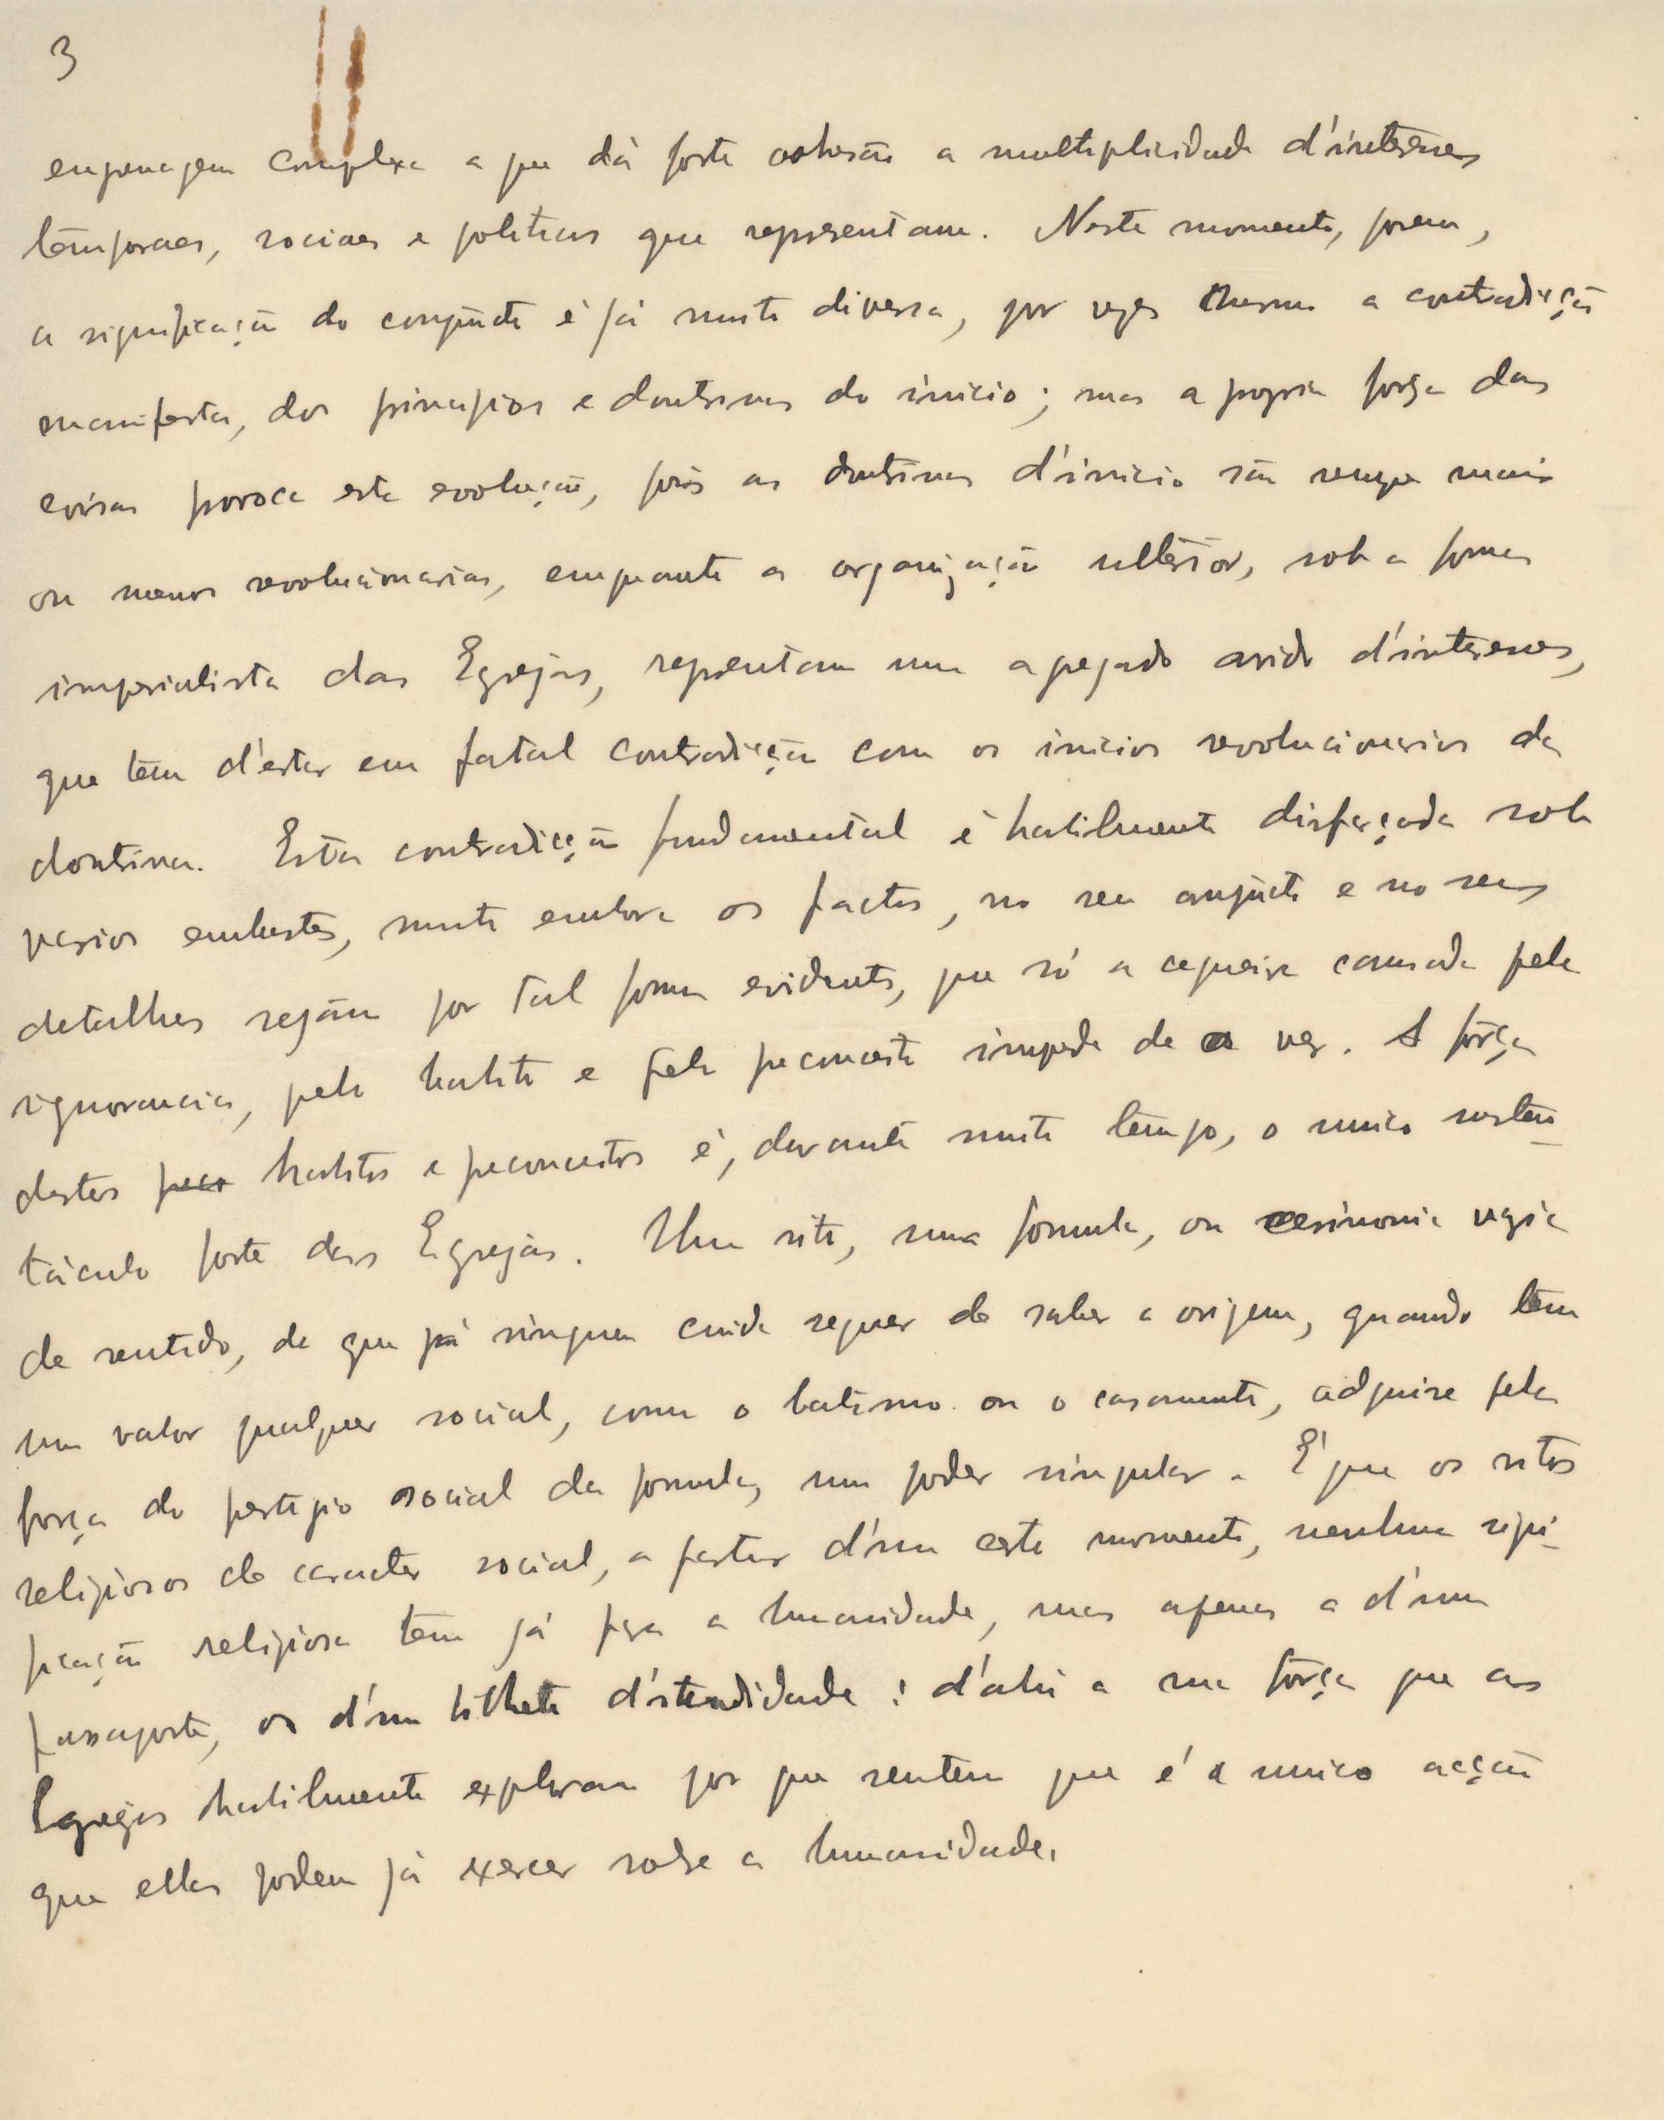 3
engrenagem complexa a que dá forte cohesão a multiplicidade d'interesses
temporaes, sociaes e politicos que representam. Neste momento, porem,
a significação do conjuncto é já muito diversa, por vezes mesmo a contradicção
manifesta, dos principios e doutrinas do inicio; mas a propria força das
coisas provoca esta evolução, pois as doutrinas d'inicio são sempre mais
ou menos revolucionarias, emquanto a organização ulterior, sob a forma
imperialista das Egrejas, representam um apegado avido d'interesses,
que tem d'estar em fatal contradicção com os inicios revolucionarios da
doutrina. Esta contradicção fundamental é habilmente disfarçada sob
varios embustes, muito embora os factos, no seu conjuncto e no seus
detalhes sejam por tal forma evidentes, que só a cegueira causada pela
ignorancia, pelo habito e pelo preconceito impede de a ver. A força
destes preco habitos e preconceitos é, durante muito tempo, o unico susten-
táculo forte das Egrejas. Um rito, uma formula, ou cerimonia vazia
de sentido, de que já ninguem cuida sequer de saber a origem, quando tem
um valor qualquer social, como o batismo ou o casamento, adquire pela
força do prestigio social da formula, um poder singular. É que os ritos
religiosos de caracter social, a partir d'um certo momento, nenhuma signi-
ficação religiosa tem já para a humanidade, mas apenas a d'um
passaporte, ou d'um bilhete d'identidade: d'ahi a sua força que as
Egrejas habilmente exploram por que sentem que é a unica acção
que ellas podem já exercer sobre a humanidade.